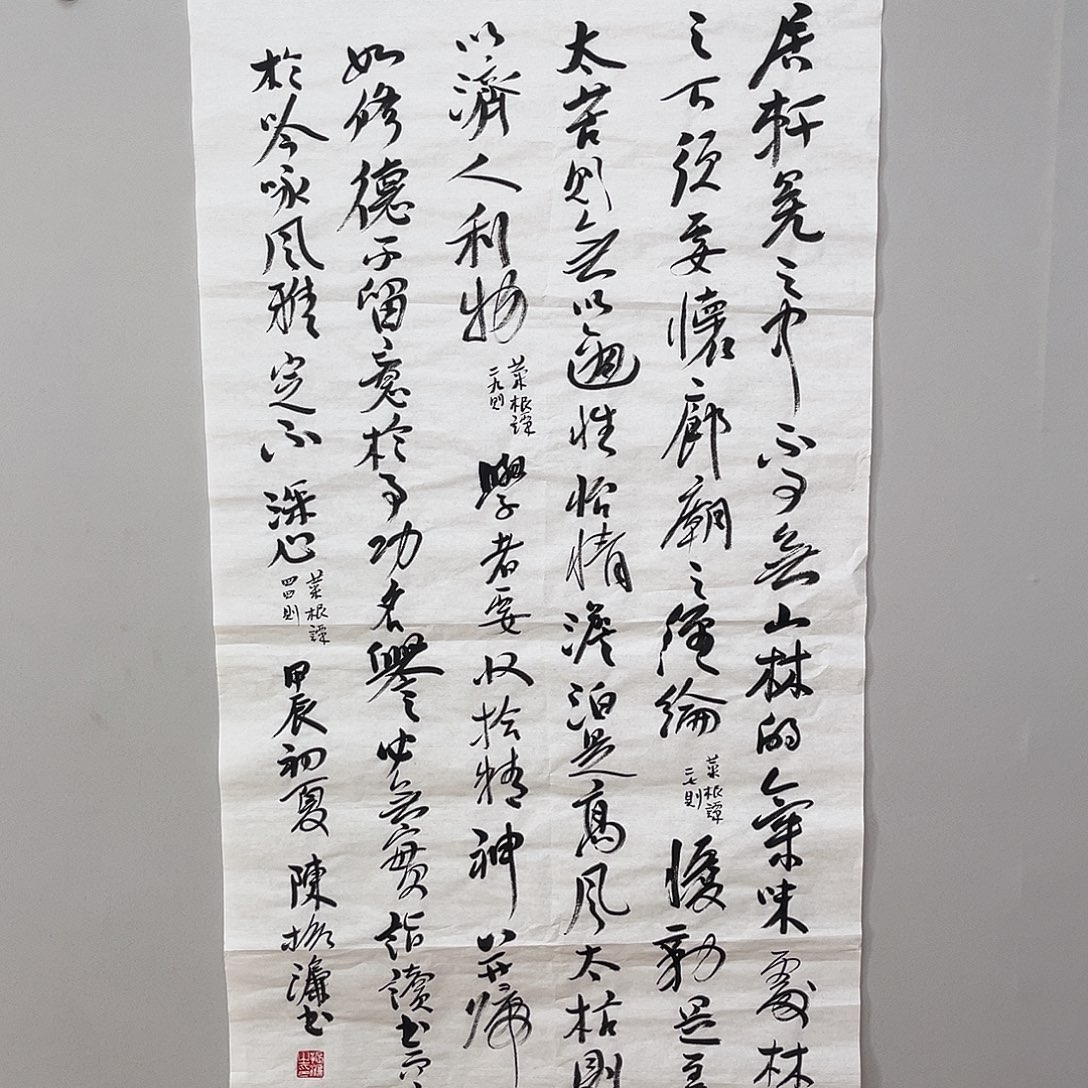 居軒冕之中不可無山林的氣味處林
之下須要懷廊廟之經綸
菜根譚
二七則
憂勤是美
太苦則無以適性怡情澹泊是高風太枯則
以濟人利物
菜根譚
二九則
學者要収拾精神并歸
如修德而留意於事功名譽必無實詣讀書而
於吟咏風雅定不深心
菜根譚
四四則
甲辰初夏 陳振濂書